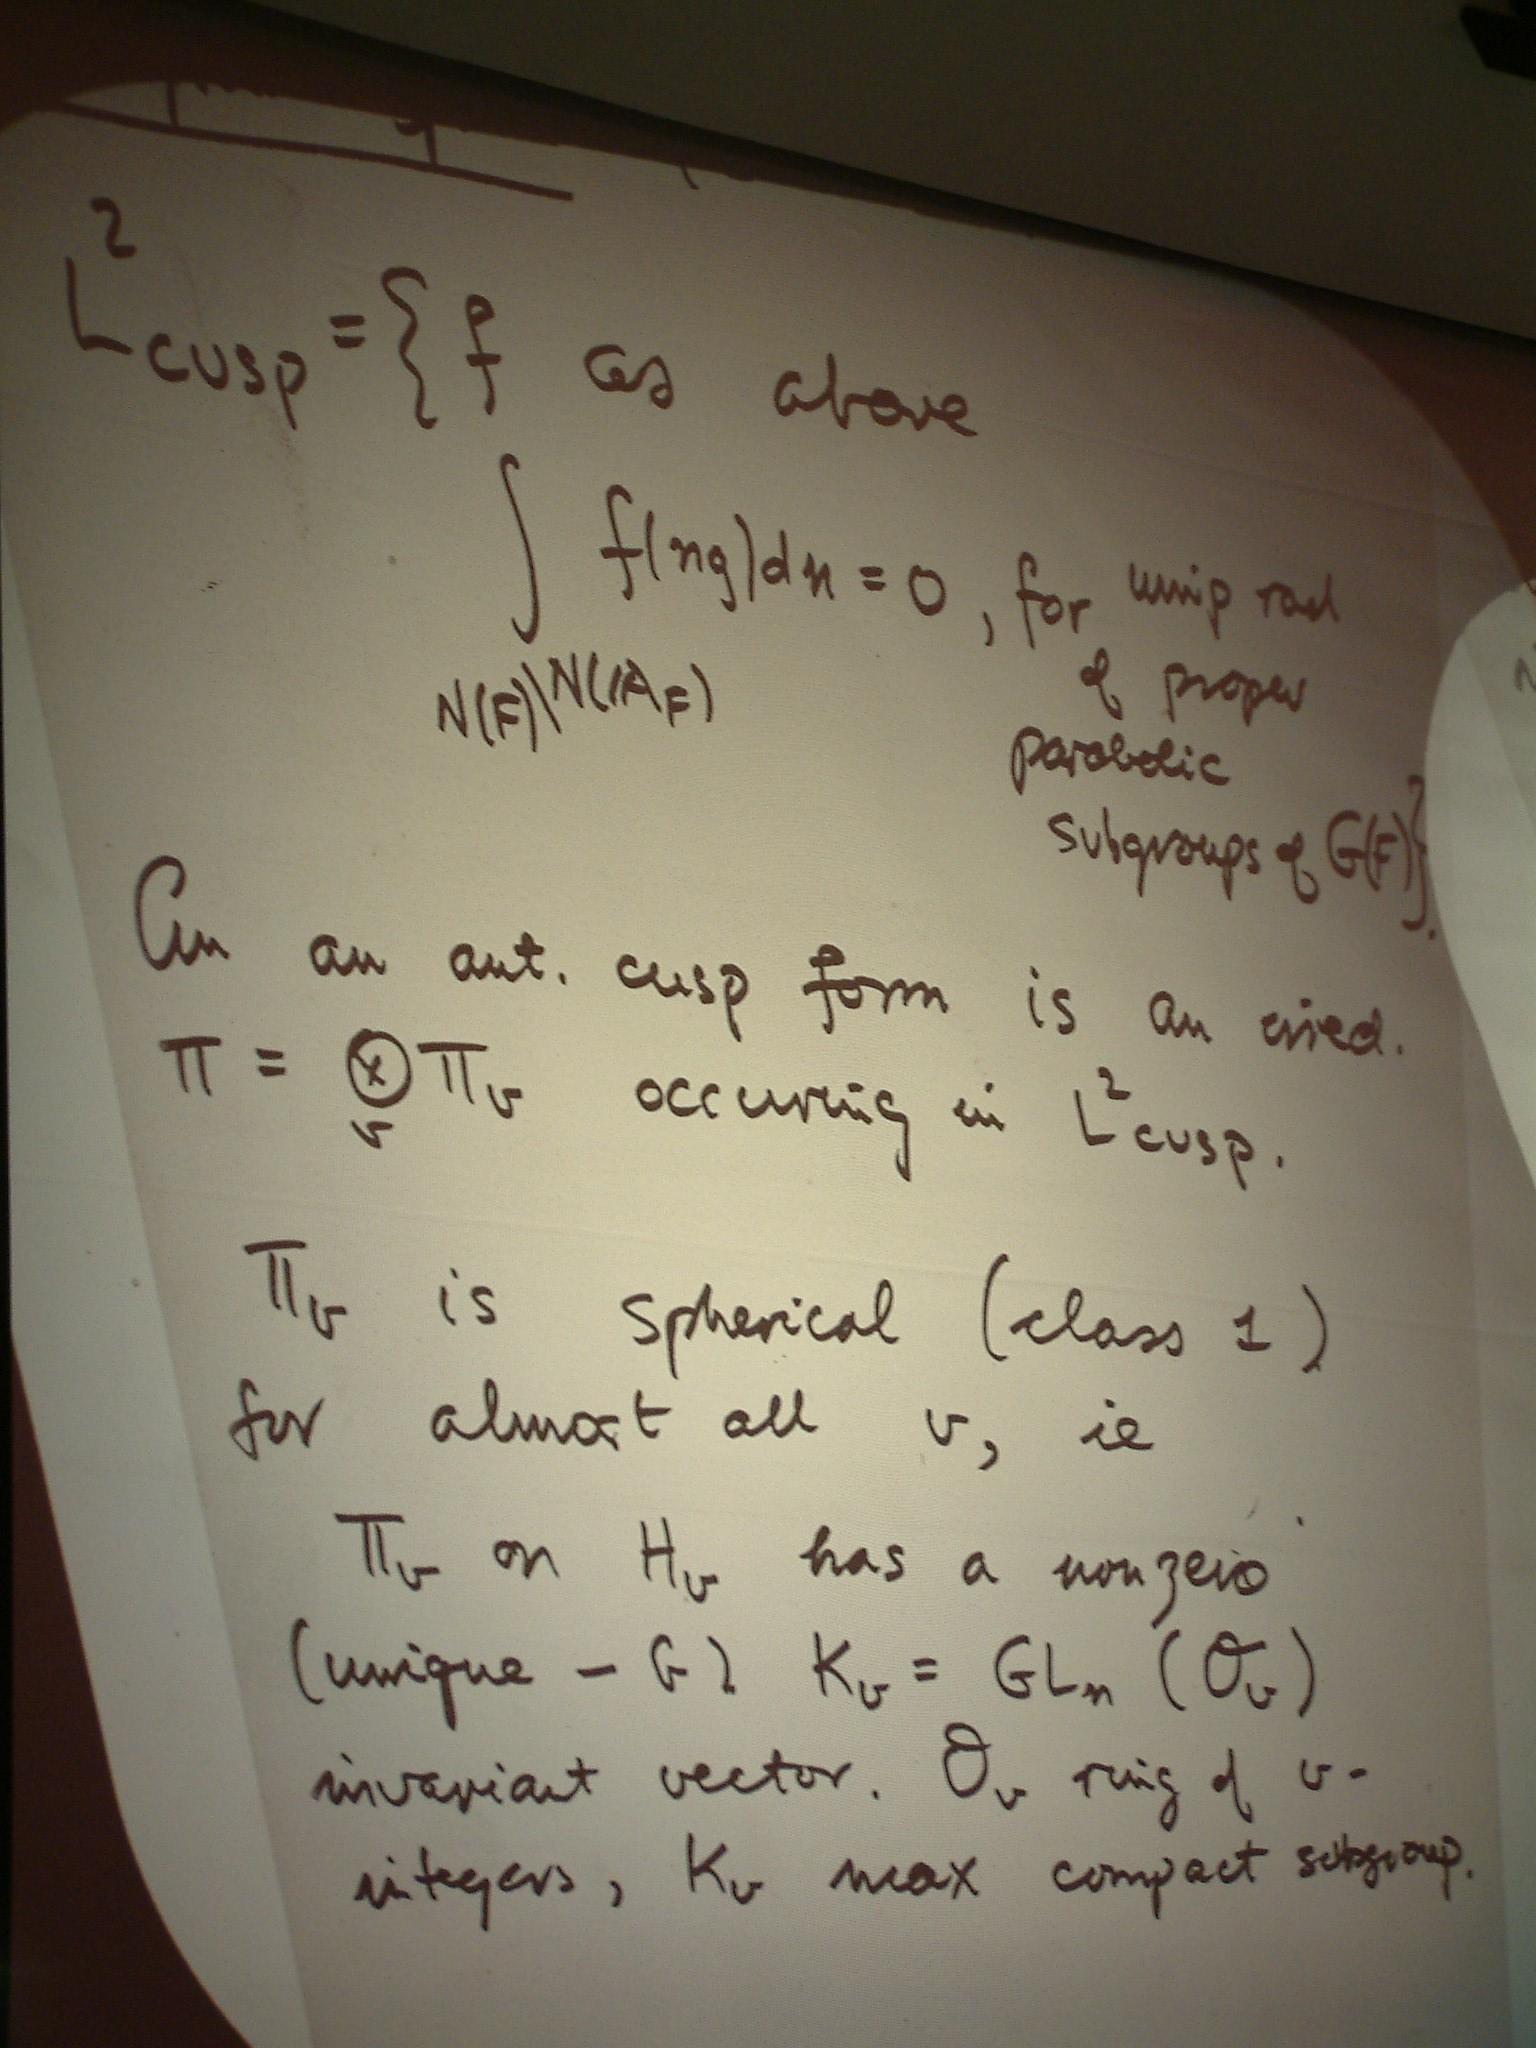 L²cusp = { f as above
∫ f(ng)dn = 0, for unip rad
N(F)\N(𝔸F) of proper
parabolic
subgroups of G(F)}.
an aut. cusp form is an irred.
π = ⊗v πv occuring in L²cusp.
πv is spherical (class 1)
for almost all v, ie
πv on Hv has a nonzero
(unique - G) Kv = GLn (Ov)
invariant vector. Ov ring of v-
integers, Kv max compact subgroup.